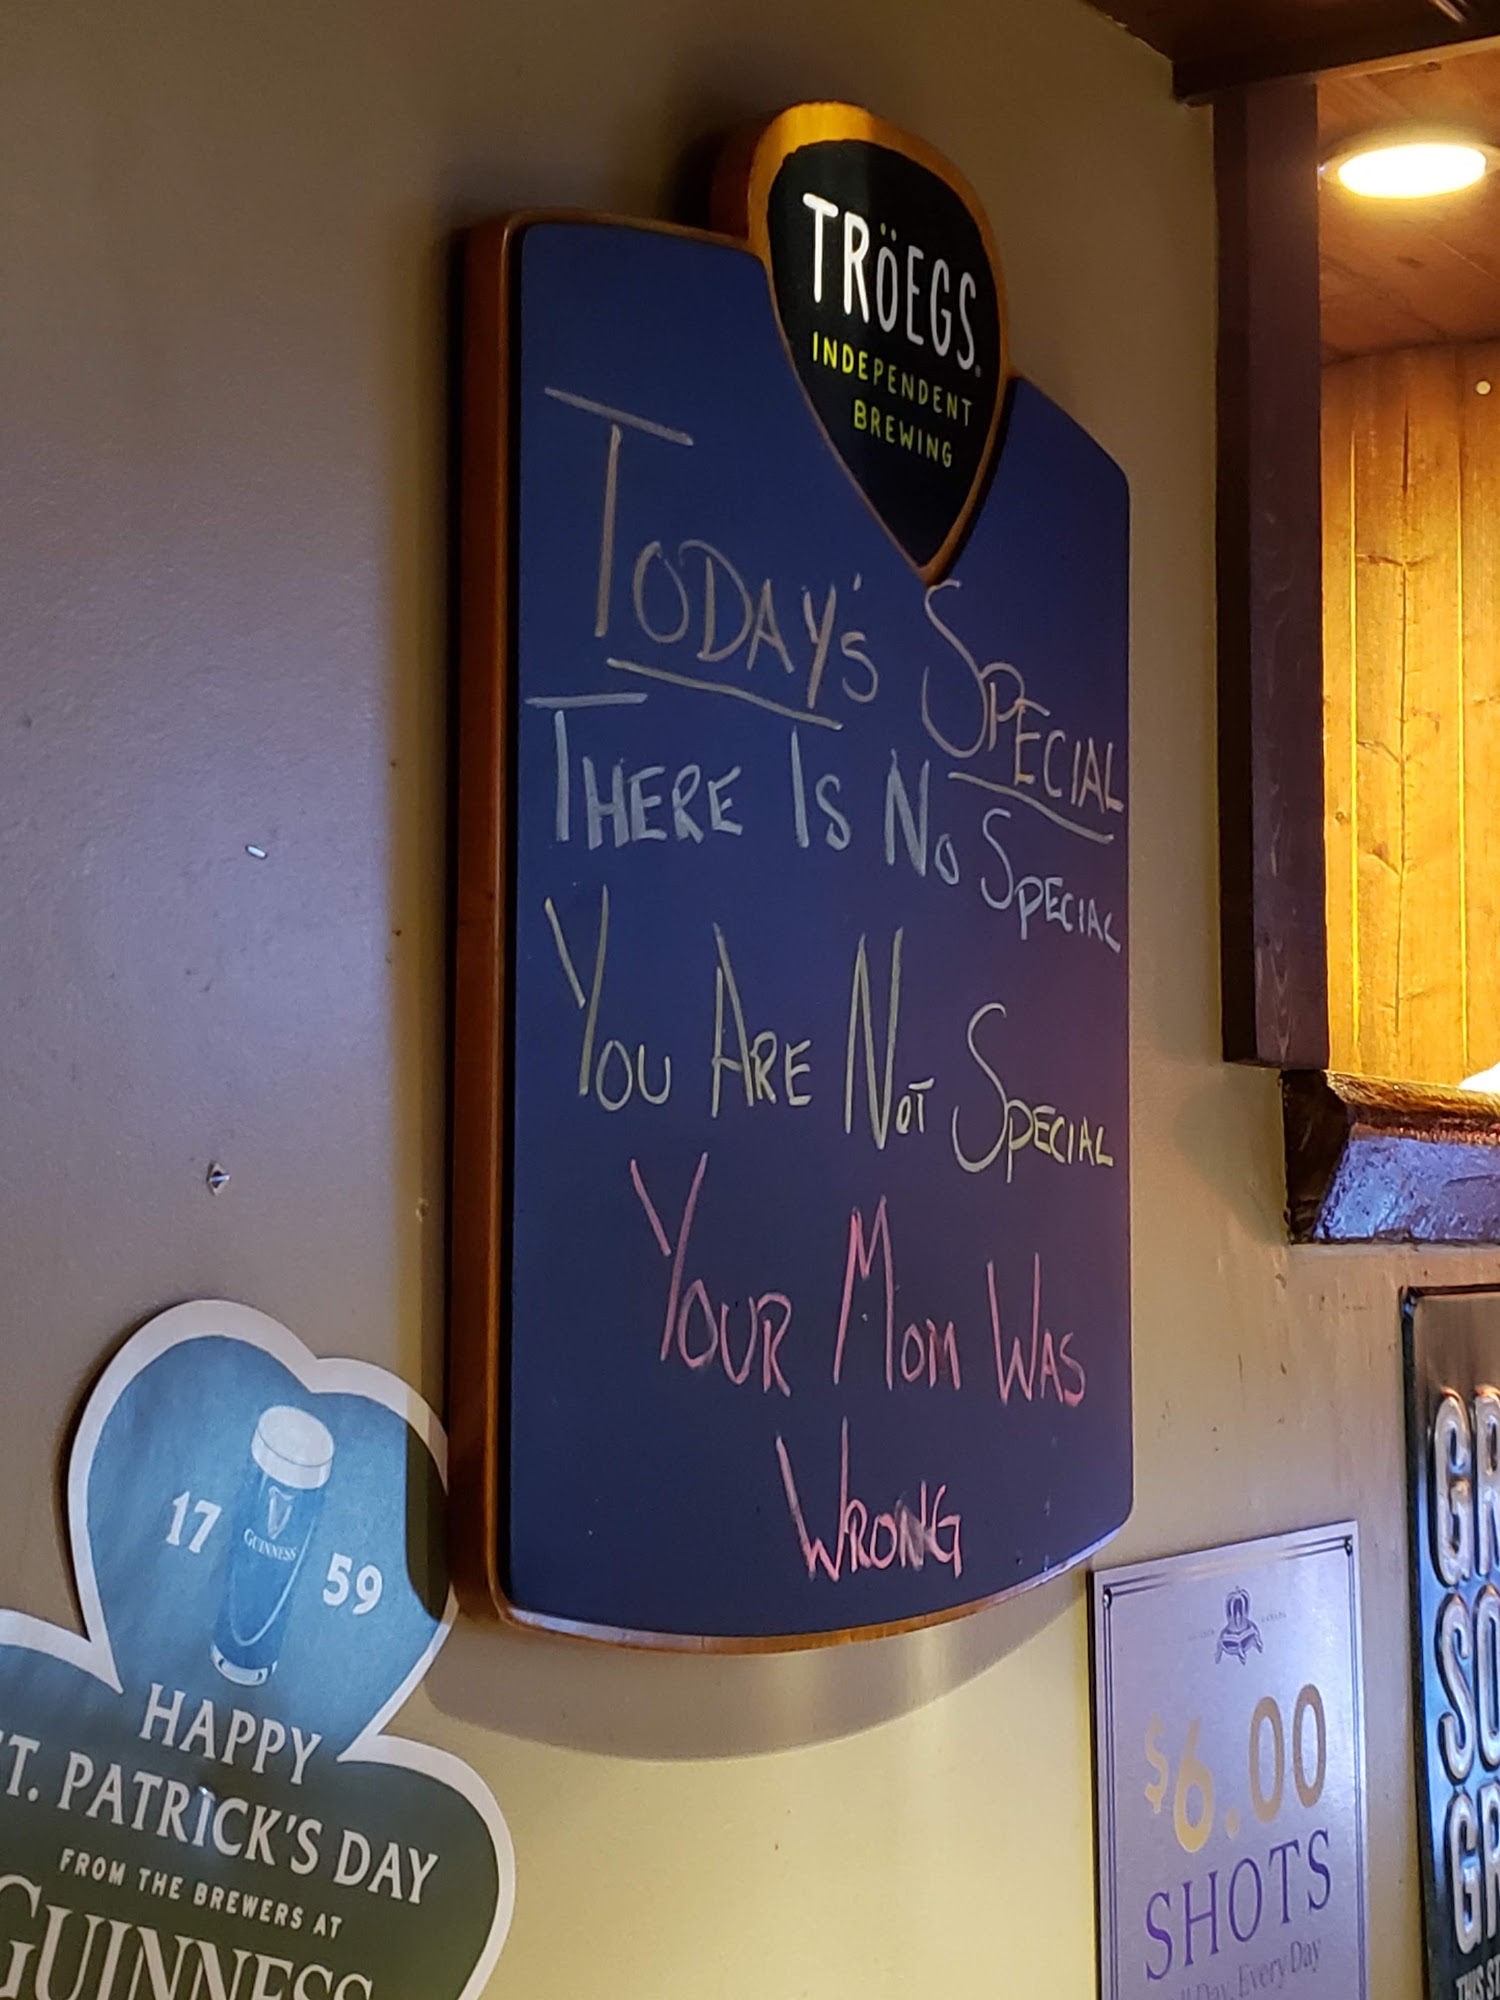 TRÖEGS®
INDEPENDENT
BREWING
TODAY'S SPECIAL
THERE IS NO SPECIAL
YOU ARE NOT SPECIAL
YOUR MOM WAS
WRONG
17 59
GUINNESS
HAPPY
ST. PATRICK'S DAY
FROM THE BREWERS AT
GUINNESS
$6.00
SHOTS
Day, Every Day
GR
SO
GR
THIS